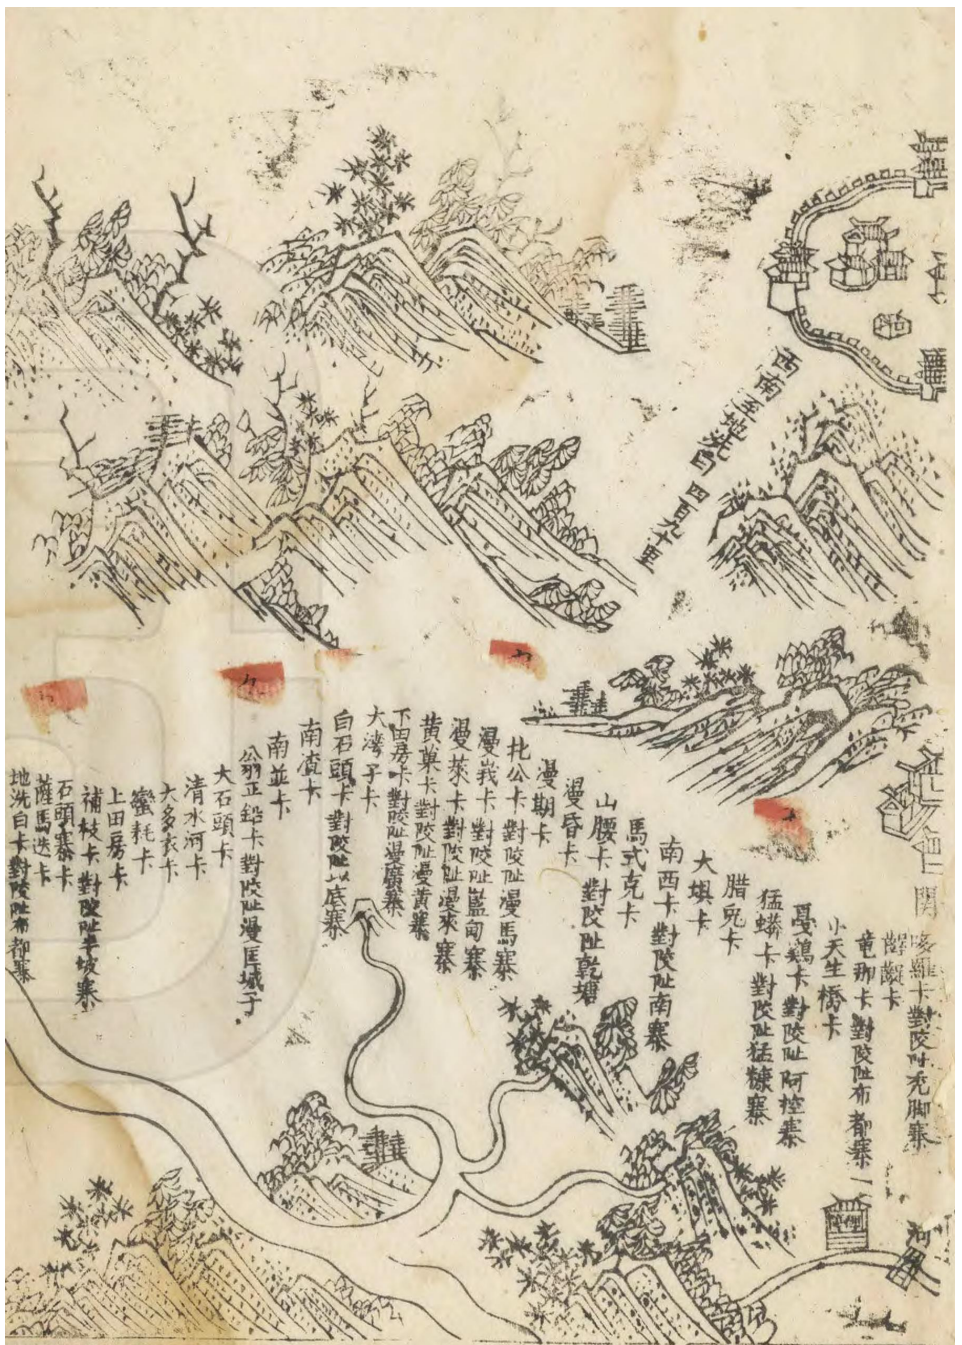 西南至地洗白四百九十里
関
哆羅卡對陔阯禿脚寨
竜那卡對陔阯布都寨
小天生橋卡
戞鷄卡對陔阯阿控寨
猛蟒卡對陔阯猛糠寨
腊兎卡
大埧卡
南西卡對陔阯南寨
馬式克卡
山腰卡對陔阯乾塘
漫昏卡
漫期卡
牝公卡對陔阯漫馬寨
漫峩卡對陔阯藍甸寨
漫萊卡對陔阯漫來寨
黃菓卡對陔阯漫黃寨
下田房卡對陔阯漫廣寨
大灣子卡
白石頭卡對陔阯以底寨
南渣卡
南並卡
翁正鉛卡對陔阯漫匡城子
大石頭卡
清水河卡
大多衣卡
蠻耗卡
上田房卡
補枝卡對陔阯半坡寨
石頭寨卡
薩馬迭卡
地洗白卡對陔阯布都寨
河